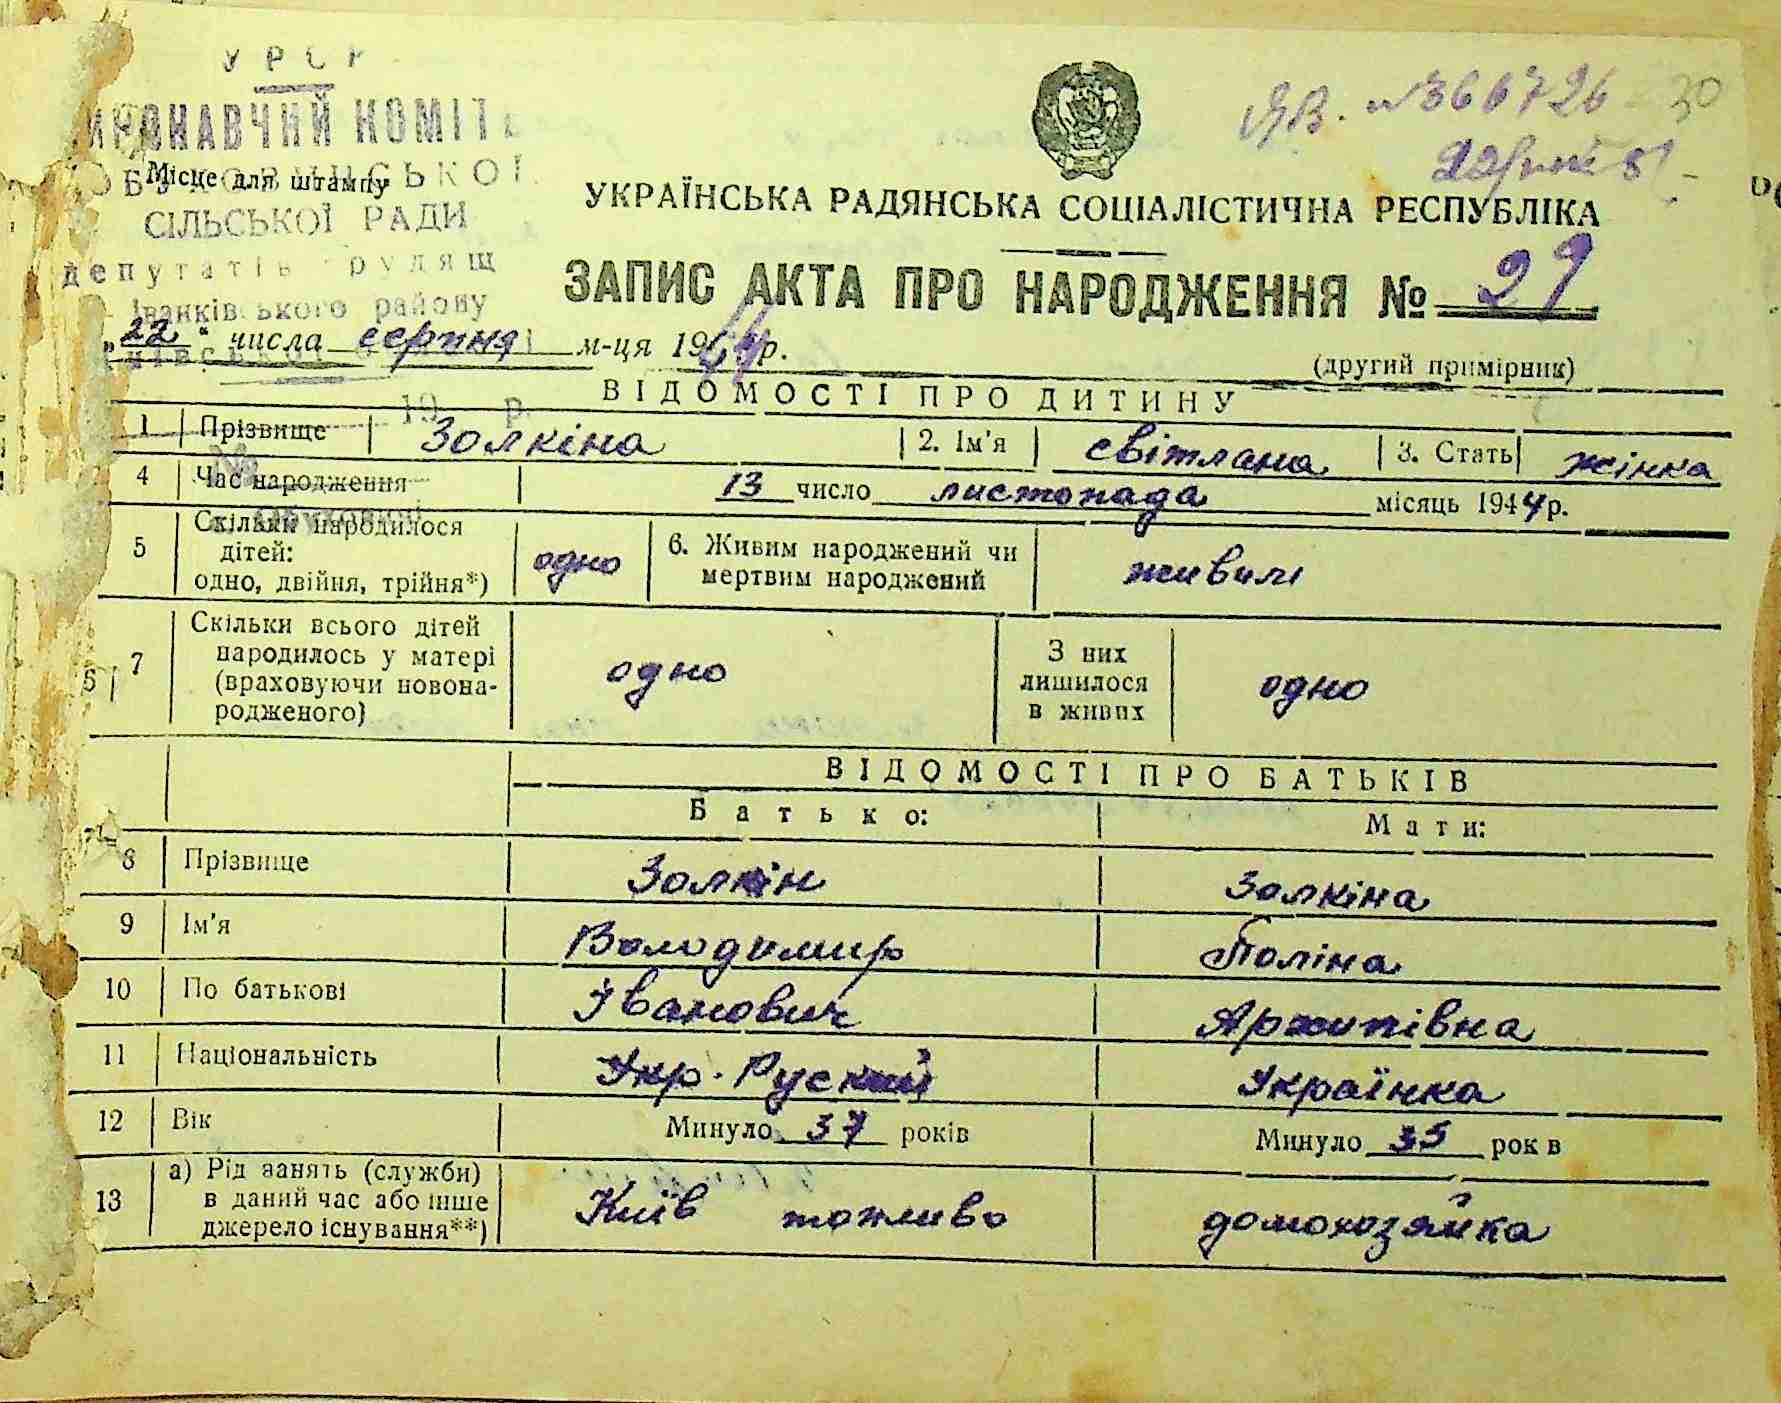 УРСР
КОМІТЕ
Місце для штампу
СІЛЬСЬКОЇ РАДИ
депутатів трудящ
Іванківського району
19 р.
№
ЯВ. № 366726 30
УКРАЇНСЬКА РАДЯНСЬКА СОЦІАЛІСТИЧНА РЕСПУБЛІКА
ЗАПИС АКТА ПРО НАРОДЖЕННЯ № 29
„22“ числа серпня м-ця 1944р.
(другий примірник)
ВІДОМОСТІ ПРО ДИТИНУ
1 Прізвище Золкіна 2. Ім'я Світлана 3. Стать жінка
4 Час народження 13 число листопада місяць 1944р.
5 Скільки народилося дітей: одно, двійня, трійня*) одно 6. Живим народжений чи мертвим народжений живим
7 Скільки всього дітей народилось у матері (враховуючи новонародженого) одно З них лишилося в живих одно
ВІДОМОСТІ ПРО БАТЬКІВ
Батько: Мати:
8 Прізвище Золкін Золкіна
9 Ім'я Володимир Поліна
10 По батькові Іванович Архипівна
11 Національність Укр. Руский Українка
12 Вік Минуло 37 років Минуло 35 рок в
13 а) Рід занять (служби) в даний час або інше джерело існування**) Київ топливо домохозяйка